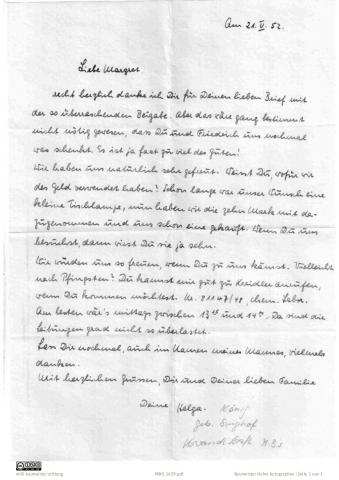 Am 21. V. 52.
Liebe Margret
recht herzlich danke ich Dir für Deinen lieben Brief mit
der so überraschenden Beigabe. Aber das wäre ganz bestimmt
nicht nötig gewesen, dass Du und Friedrich uns nochmal
was schenkt. Es ist ja fast zu viel des Guten!
Wir haben uns natürlich sehr gefreut. Weisst Du, wofür wir
das Geld verwendet haben? Schon lange war unser Wunsch eine
kleine Tischlampe, nun haben wir die zehn Mark mit da-
zugenommen und uns schon eine gekauft. Wenn Du uns
besuchst, dann wirst Du sie ja sehn.
Wir würden uns so freuen, wenn Du zu uns kämst. Vielleicht
nach Pfingsten? Du kannst mir gut zu Kreidler anrufen,
wenn Du kommen möchtest. Nr. 81147/48, chem. Labor.
Am besten wär's mittags zwischen 13 und 14. Da sind die
Leitungen grad nicht so überlastet.
Lass Dir nochmal, auch im Namen meines Mannes, vielmals
danken.
Mit herzlichen Grüssen, Dir und Deiner lieben Familie
Deine Helga. König
geb.
will baumeister stiftung
Baumeister Reihe Autographen | Seite 1 von 1